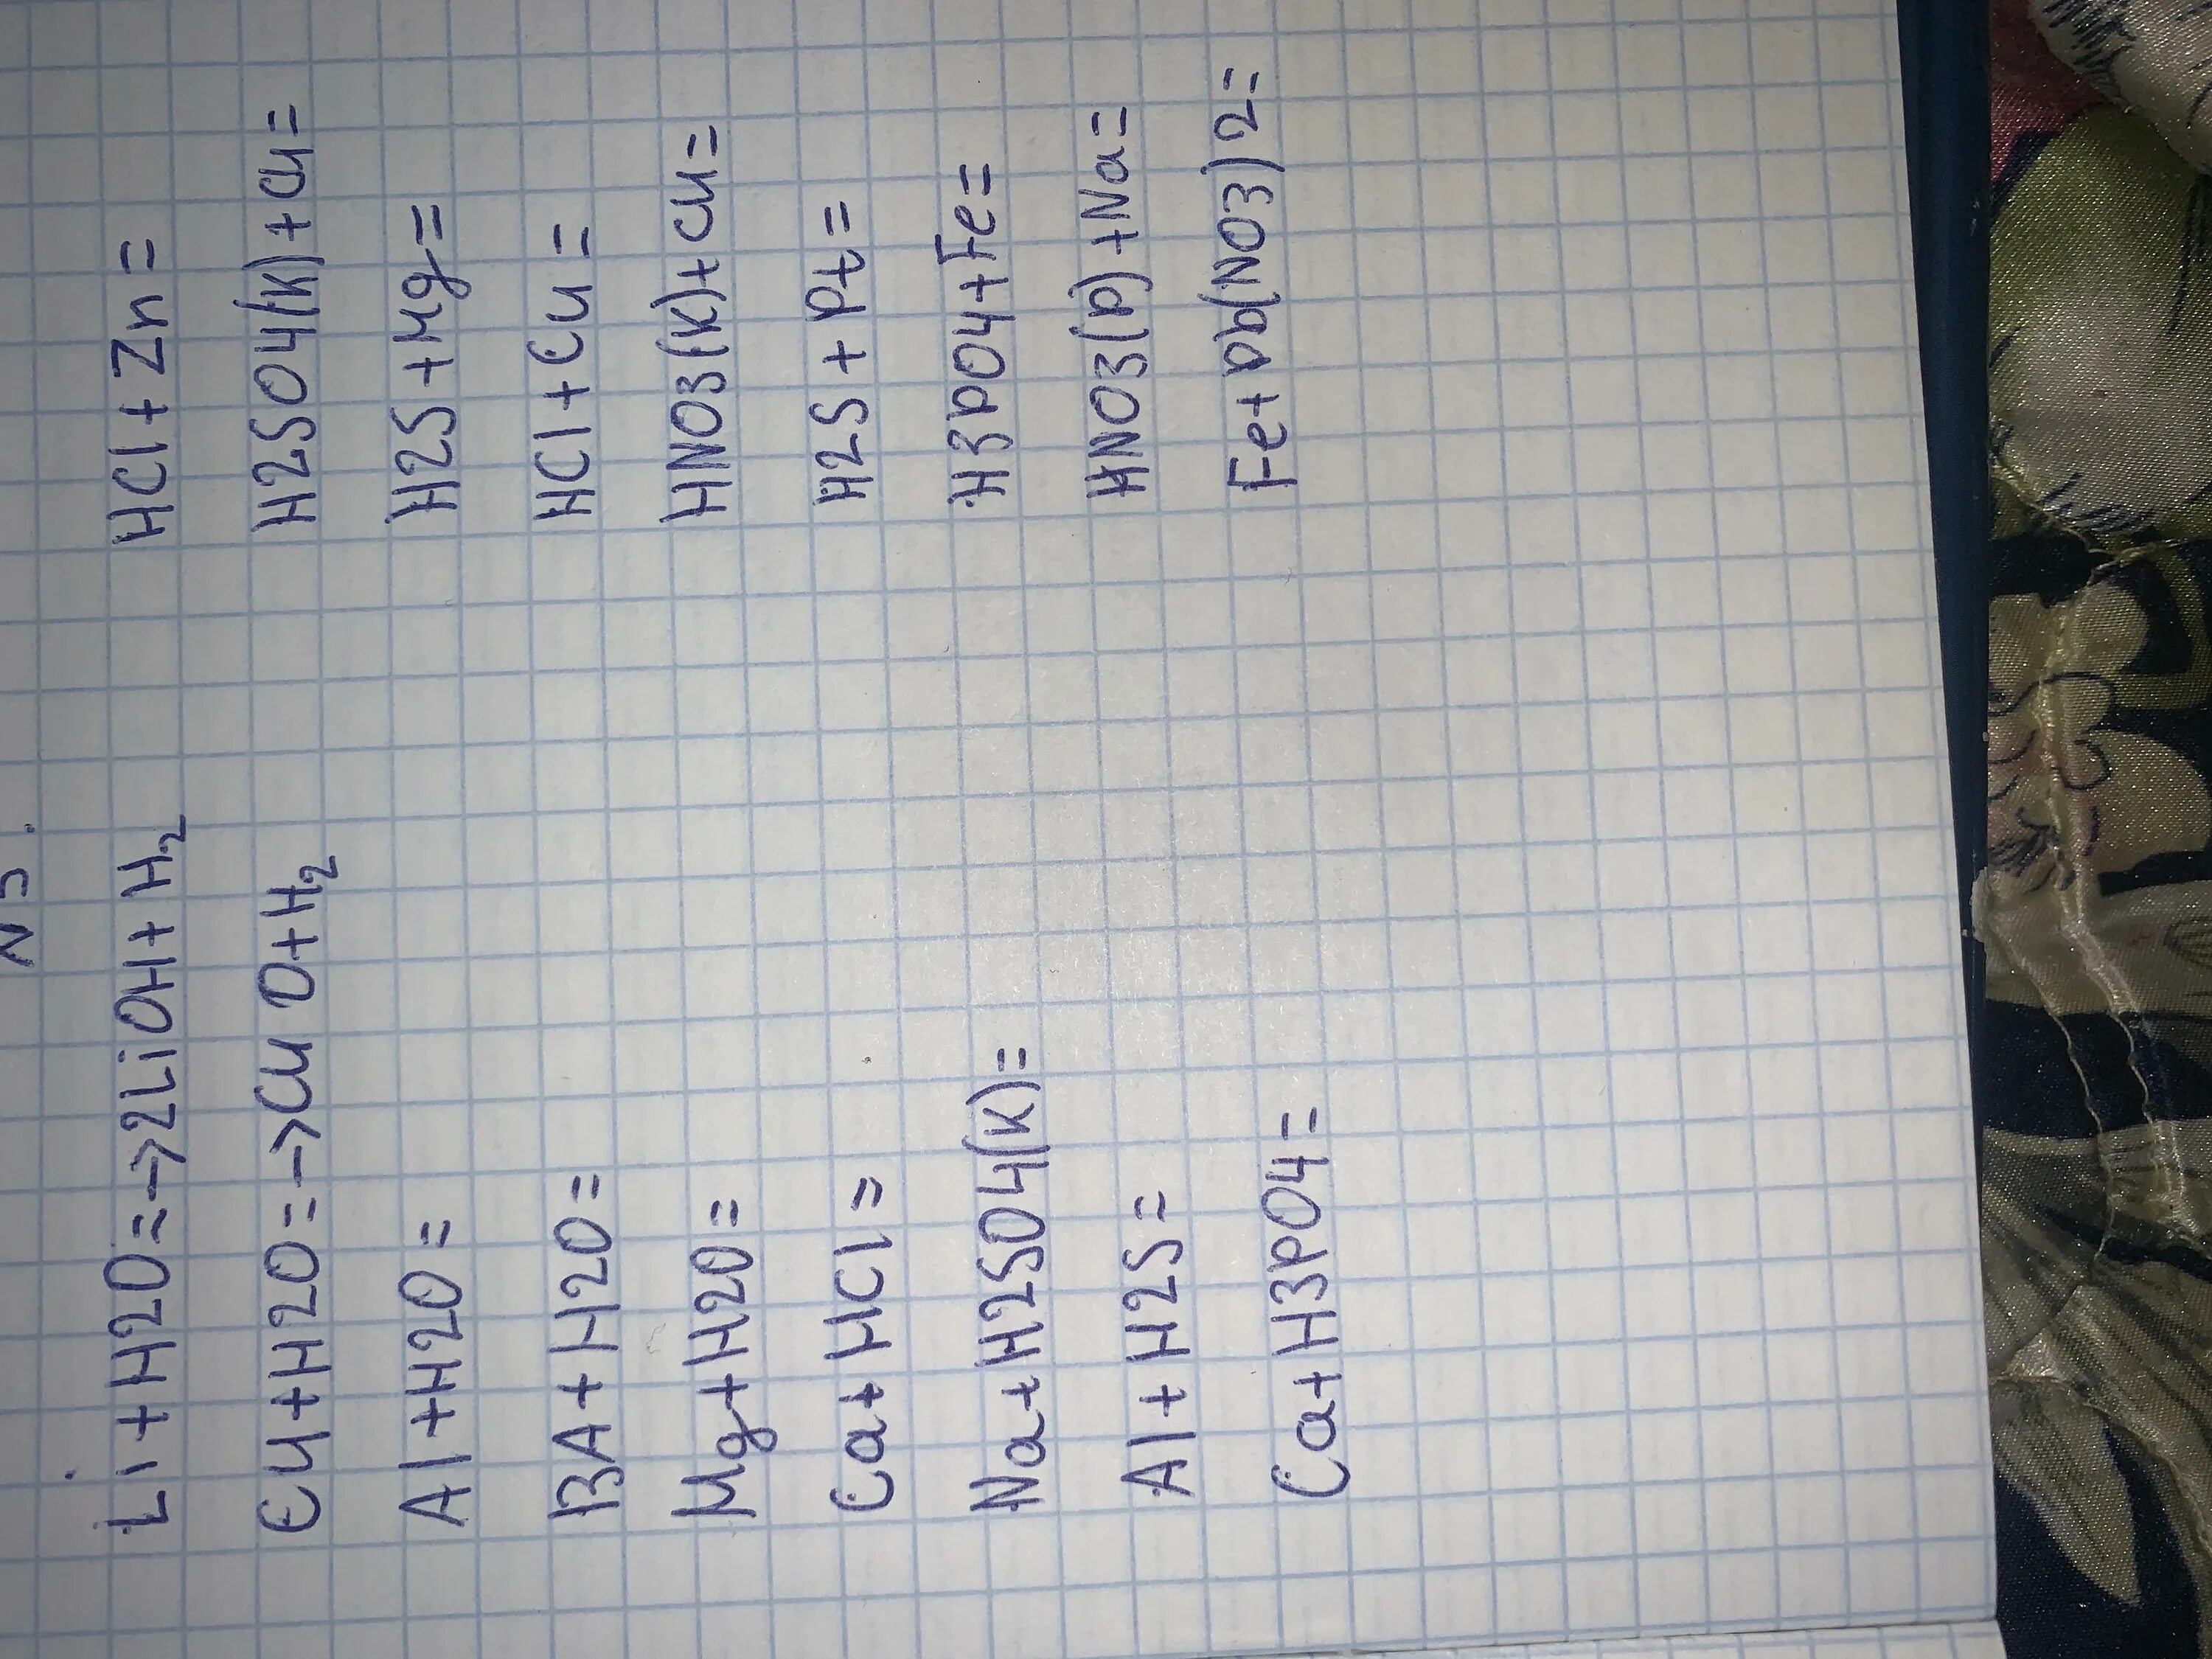 N3.
Li+H2O=→2LiOH+H2
Cu+H2O=→CuO+H2
Al+H2O=
BA+H2O=
Mg+H2O=
Ca+HCl=
Na+H2SO4(K)=
Al+H2S=
Ca+H3PO4=
HCl+Zn=
H2SO4(K)+Cu=
H2S+Mg=
HCl+Cu=
HNO3(K)+Cu=
H2S+Pt=
H3PO4+Fe=
HNO3(p)+Na=
Fe+Pb(NO3)2=